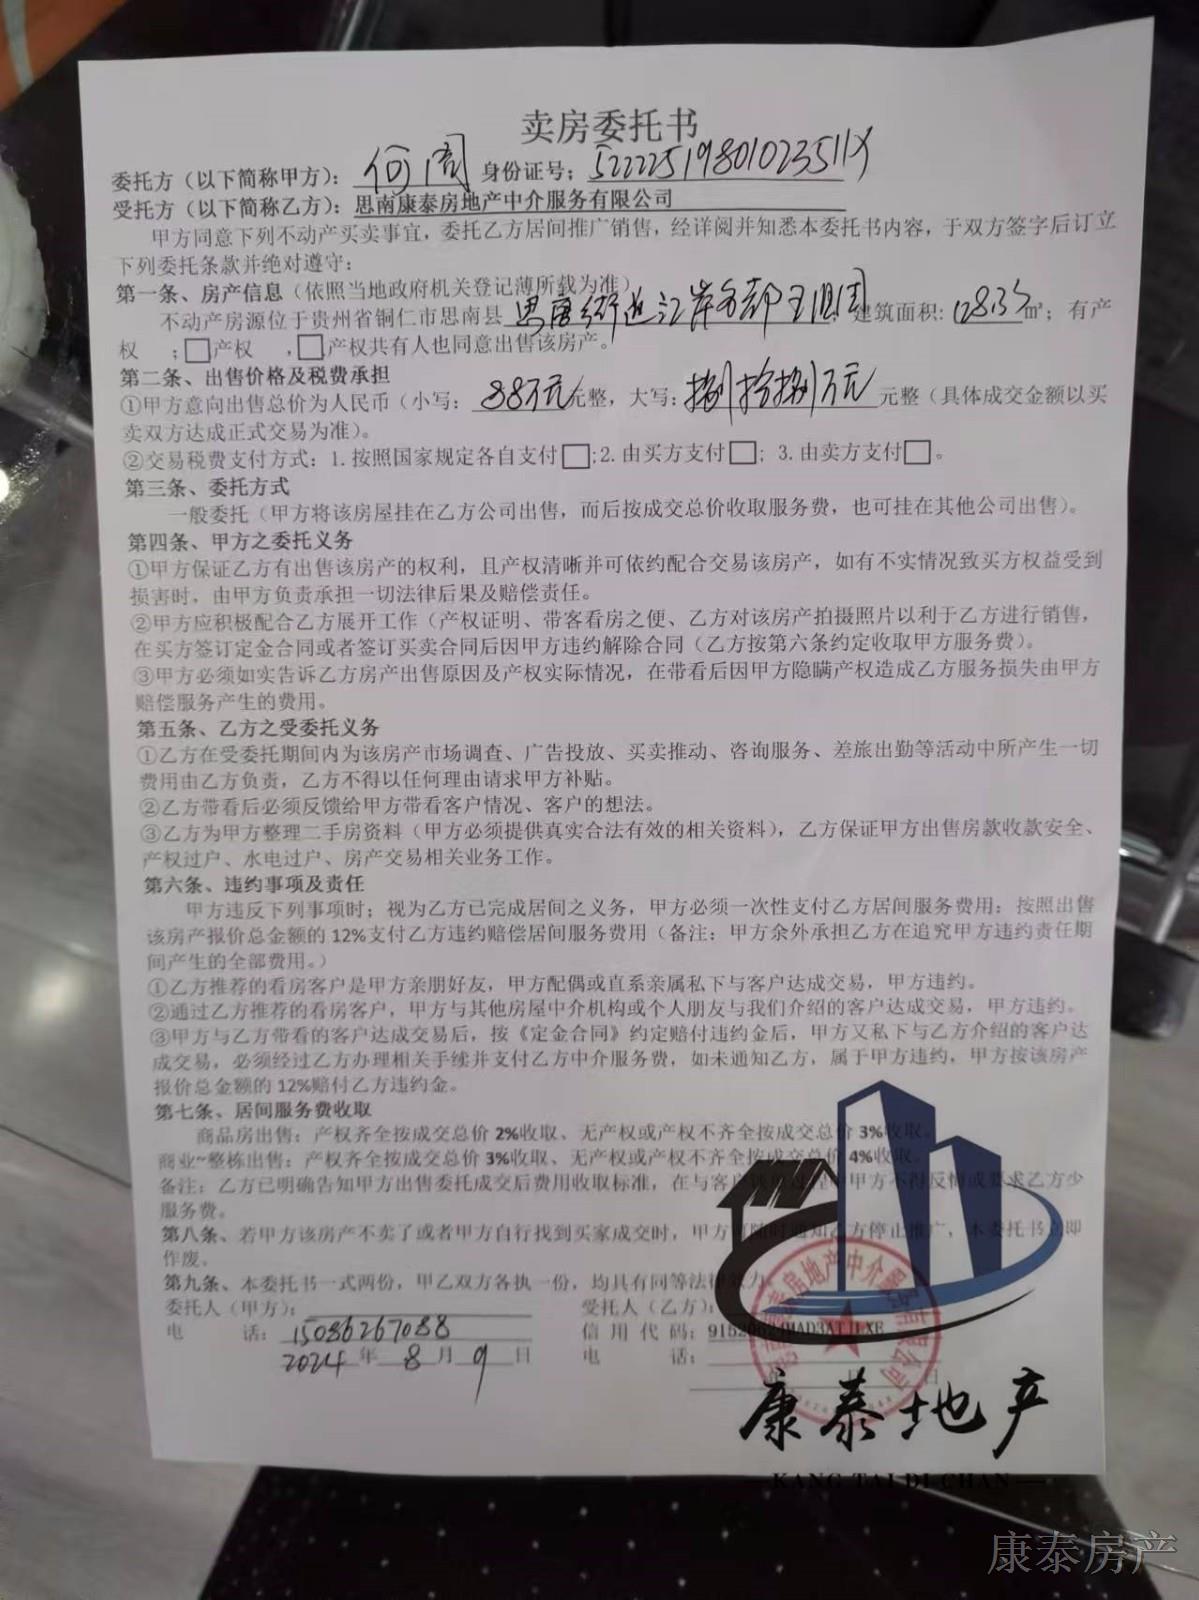 卖房委托书
委托方（以下简称甲方）：何阊 身份证号：52222519801023511X
受托方（以下简称乙方）：思南康泰房地产中介服务有限公司
甲方同意下列不动产买卖事宜，委托乙方居间推广销售，经详阅并知悉本委托书内容，于双方签字后订立
下列委托条款并绝对遵守：
第一条、房产信息（依照当地政府机关登记薄所载为准）
不动产房源位于贵州省铜仁市思南县 思唐街道江岸名都 建筑面积：128.35㎡；有产
权 ；□产权 ，□产权共有人也同意出售该房产。
第二条、出售价格及税费承担
①甲方意向出售总价为人民币（小写：88万元元整，大写：捌拾捌万元 元整（具体成交金额以买
卖双方达成正式交易为准）。
②交易税费支付方式：1.按照国家规定各自支付□;2.由买方支付□；3.由卖方支付□。
第三条、委托方式
一般委托（甲方将该房屋挂在乙方公司出售，而后按成交总价收取服务费，也可挂在其他公司出售）。
第四条、甲方之委托义务
①甲方保证乙方有出售该房产的权利，且产权清晰并可依约配合交易该房产，如有不实情况致买方权益受到
损害时，由甲方负责承担一切法律后果及赔偿责任。
②甲方应积极配合乙方展开工作（产权证明、带客看房之便、乙方对该房产拍摄照片以利于乙方进行销售，
在买方签订定金合同或者签订买卖合同后因甲方违约解除合同（乙方按第六条约定收取甲方服务费）。
③甲方必须如实告诉乙方房产出售原因及产权实际情况，在带看后因甲方隐瞒产权造成乙方服务损失由甲方
赔偿服务产生的费用。
第五条、乙方之受委托义务
①乙方在受委托期间内为该房产市场调查、广告投放、买卖推动、咨询服务、差旅出勤等活动中所产生一切
费用由乙方负责，乙方不得以任何理由请求甲方补贴。
②乙方带看后必须反馈给甲方带看客户情况、客户的想法。
③乙方为甲方整理二手房资料（甲方必须提供真实合法有效的相关资料），乙方保证甲方出售房款收款安全、
产权过户、水电过户、房产交易相关业务工作。
第六条、违约事项及责任
甲方违反下列事项时；视为乙方已完成居间之义务，甲方必须一次性支付乙方居间服务费用；按照出售
该房产报价总金额的12%支付乙方违约赔偿居间服务费用（备注：甲方余外承担乙方在追究甲方违约责任期
间产生的全部费用。）
①乙方推荐的看房客户是甲方亲朋好友，甲方配偶或直系亲属私下与客户达成交易，甲方违约。
②通过乙方推荐的看房客户，甲方与其他房屋中介机构或个人朋友与我们介绍的客户达成交易，甲方违约。
③甲方与乙方带看的客户达成交易后，按《定金合同》约定赔付违约金后，甲方又私下与乙方介绍的客户达
成交易，必须经过乙方办理相关手续并支付乙方中介服务费，如未通知乙方，属于甲方违约，甲方按该房产
报价总金额的12%赔付乙方违约金。
第七条、居间服务费收取
商品房出售：产权齐全按成交总价2%收取、无产权或产权不齐全按成交总价3%收取。
商业~整栋出售：产权齐全按成交总价3%收取、无产权或产权不齐全按成交总价4%收取。
备注：乙方已明确告知甲方出售委托成交后费用收取标准，在与客户谈单过程中甲方不得反悔或要求乙方少
服务费。
第八条、若甲方该房产不卖了或者甲方自行找到买家成交时，甲方可随时通知乙方停止推广，本委托书立即
作废。
第九条、本委托书一式两份，甲乙双方各执一份，均具有同等法律效力。
委托人（甲方）： 受托人（乙方）：
电 话：15086267088 信用代码：
2024年8月9日 电 话：
日
康泰地产
KANG TAI DI CHAN
康泰房产